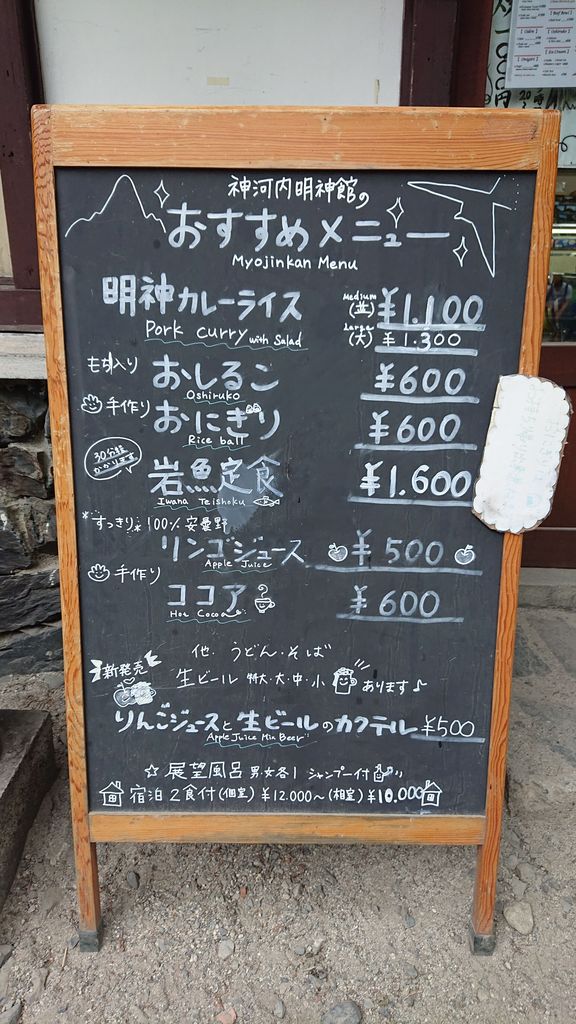 神河内明神館の
おすすめメニュー
Myojinkan Menu
明神カレーライス Medium (並) ¥1.100
Pork curry with Salad Large (大) ¥1.300
もち入り おしるこ ¥600
Oshiruko
手作り おにぎり ¥600
Rice ball
30分程かかります 岩魚定食 ¥1.600
Iwana Teishoku
*すっきり* 100% 安曇野
リンゴジュース ¥500
Apple Juice
手作り ココア ¥600
Hot Cocoa
他、うどん・そば
生ビール 特大・大・中・小 あります♪
新発売
りんごジュースと生ビールのカクテル ¥500
Apple Juice Mix Beer
☆展望風呂 男・女各1 シャンプー付
宿泊2食付(個室)¥12.000〜(相室)¥10.000